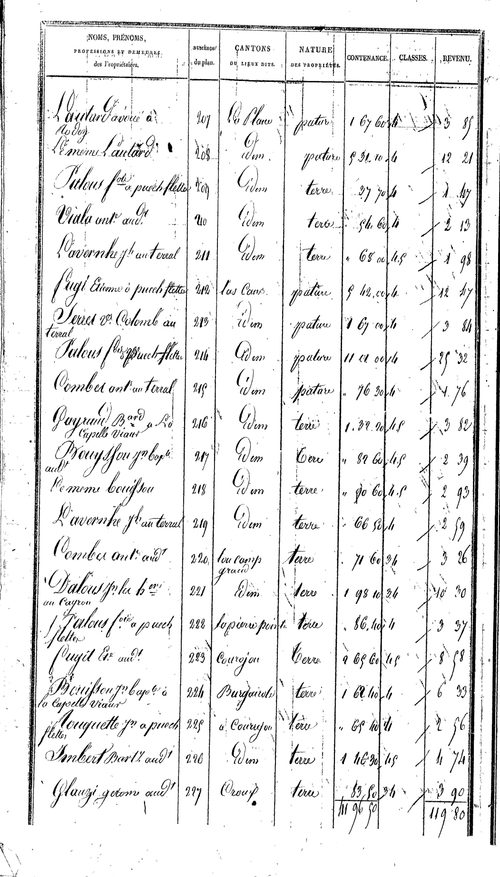 NOMS, PRÉNOMS, PROFESSIONS ET DEMEURES des Propriétaires. NUMÉROS du plan. CANTONS OU LIEUX DITS. NATURE DES PROPRIÉTÉS. CONTENANCE. CLASSES. REVENU.
Lautard avoué à 207 La Plane pature 1 67 60 4 3 85
Rodez
Le même Lautard 208 Idem pature 5 31 10 4 12 21
Palous fois a puech fletter 209 Idem terre 37 70 4 1 47
Viala ant. aud. 210 Idem terre 54 60 4 2 13
Lavernhe jh au terral 211 Idem terre " 68 00 4 5 1 98
Fugit Etienne à puech fletter 212 pature 5 42 00 4 12 47
Serres Colomb au 213 idem pature 1 67 00 4 3 84
terral
Palous puech fletter 214 Idem pature 11 01 00 4 25 32
Combes ant. au terral 215 idem pature " 76 30 4 1 76
Gayraud Bard a La 216 Idem terre 1 32 20 4 5 3 82
Capelle Viaur
Bouysson jn bapte 217 Idem Terre " 82 60 4 5 2 39
audt
Le meme bouisson 218 Idem terre " 90 60 4 5 2 93
Lavernhe jh au terral 219 Idem terre " 66 50 4 2 59
Combes ant. audt 220 lou camp terre " 71 60 3 4 3 26
grand
Dalous jn 221 Idem terre 1 98 10 3 4 10 30
au Cayrou
Palous fois a puech 222 la pierre terre " 86 40 4 3 37
fletter
Fugit Ene audt 223 Courejou Terre 2 65 60 4 5 8 58
Bouisson jn bapte à 224 terre 1 62 40 4 6 33
la Capelle Viaur
Rouquette jn a puech 225 à Courejou terre " 65 40 4 2 56
fletter
Imbert audt 226 Idem terre 1 46 30 4 5 4 74
Glauzi audt 227 Crouf terre " 83 50 3 4 3 90
41 96 50 119 80